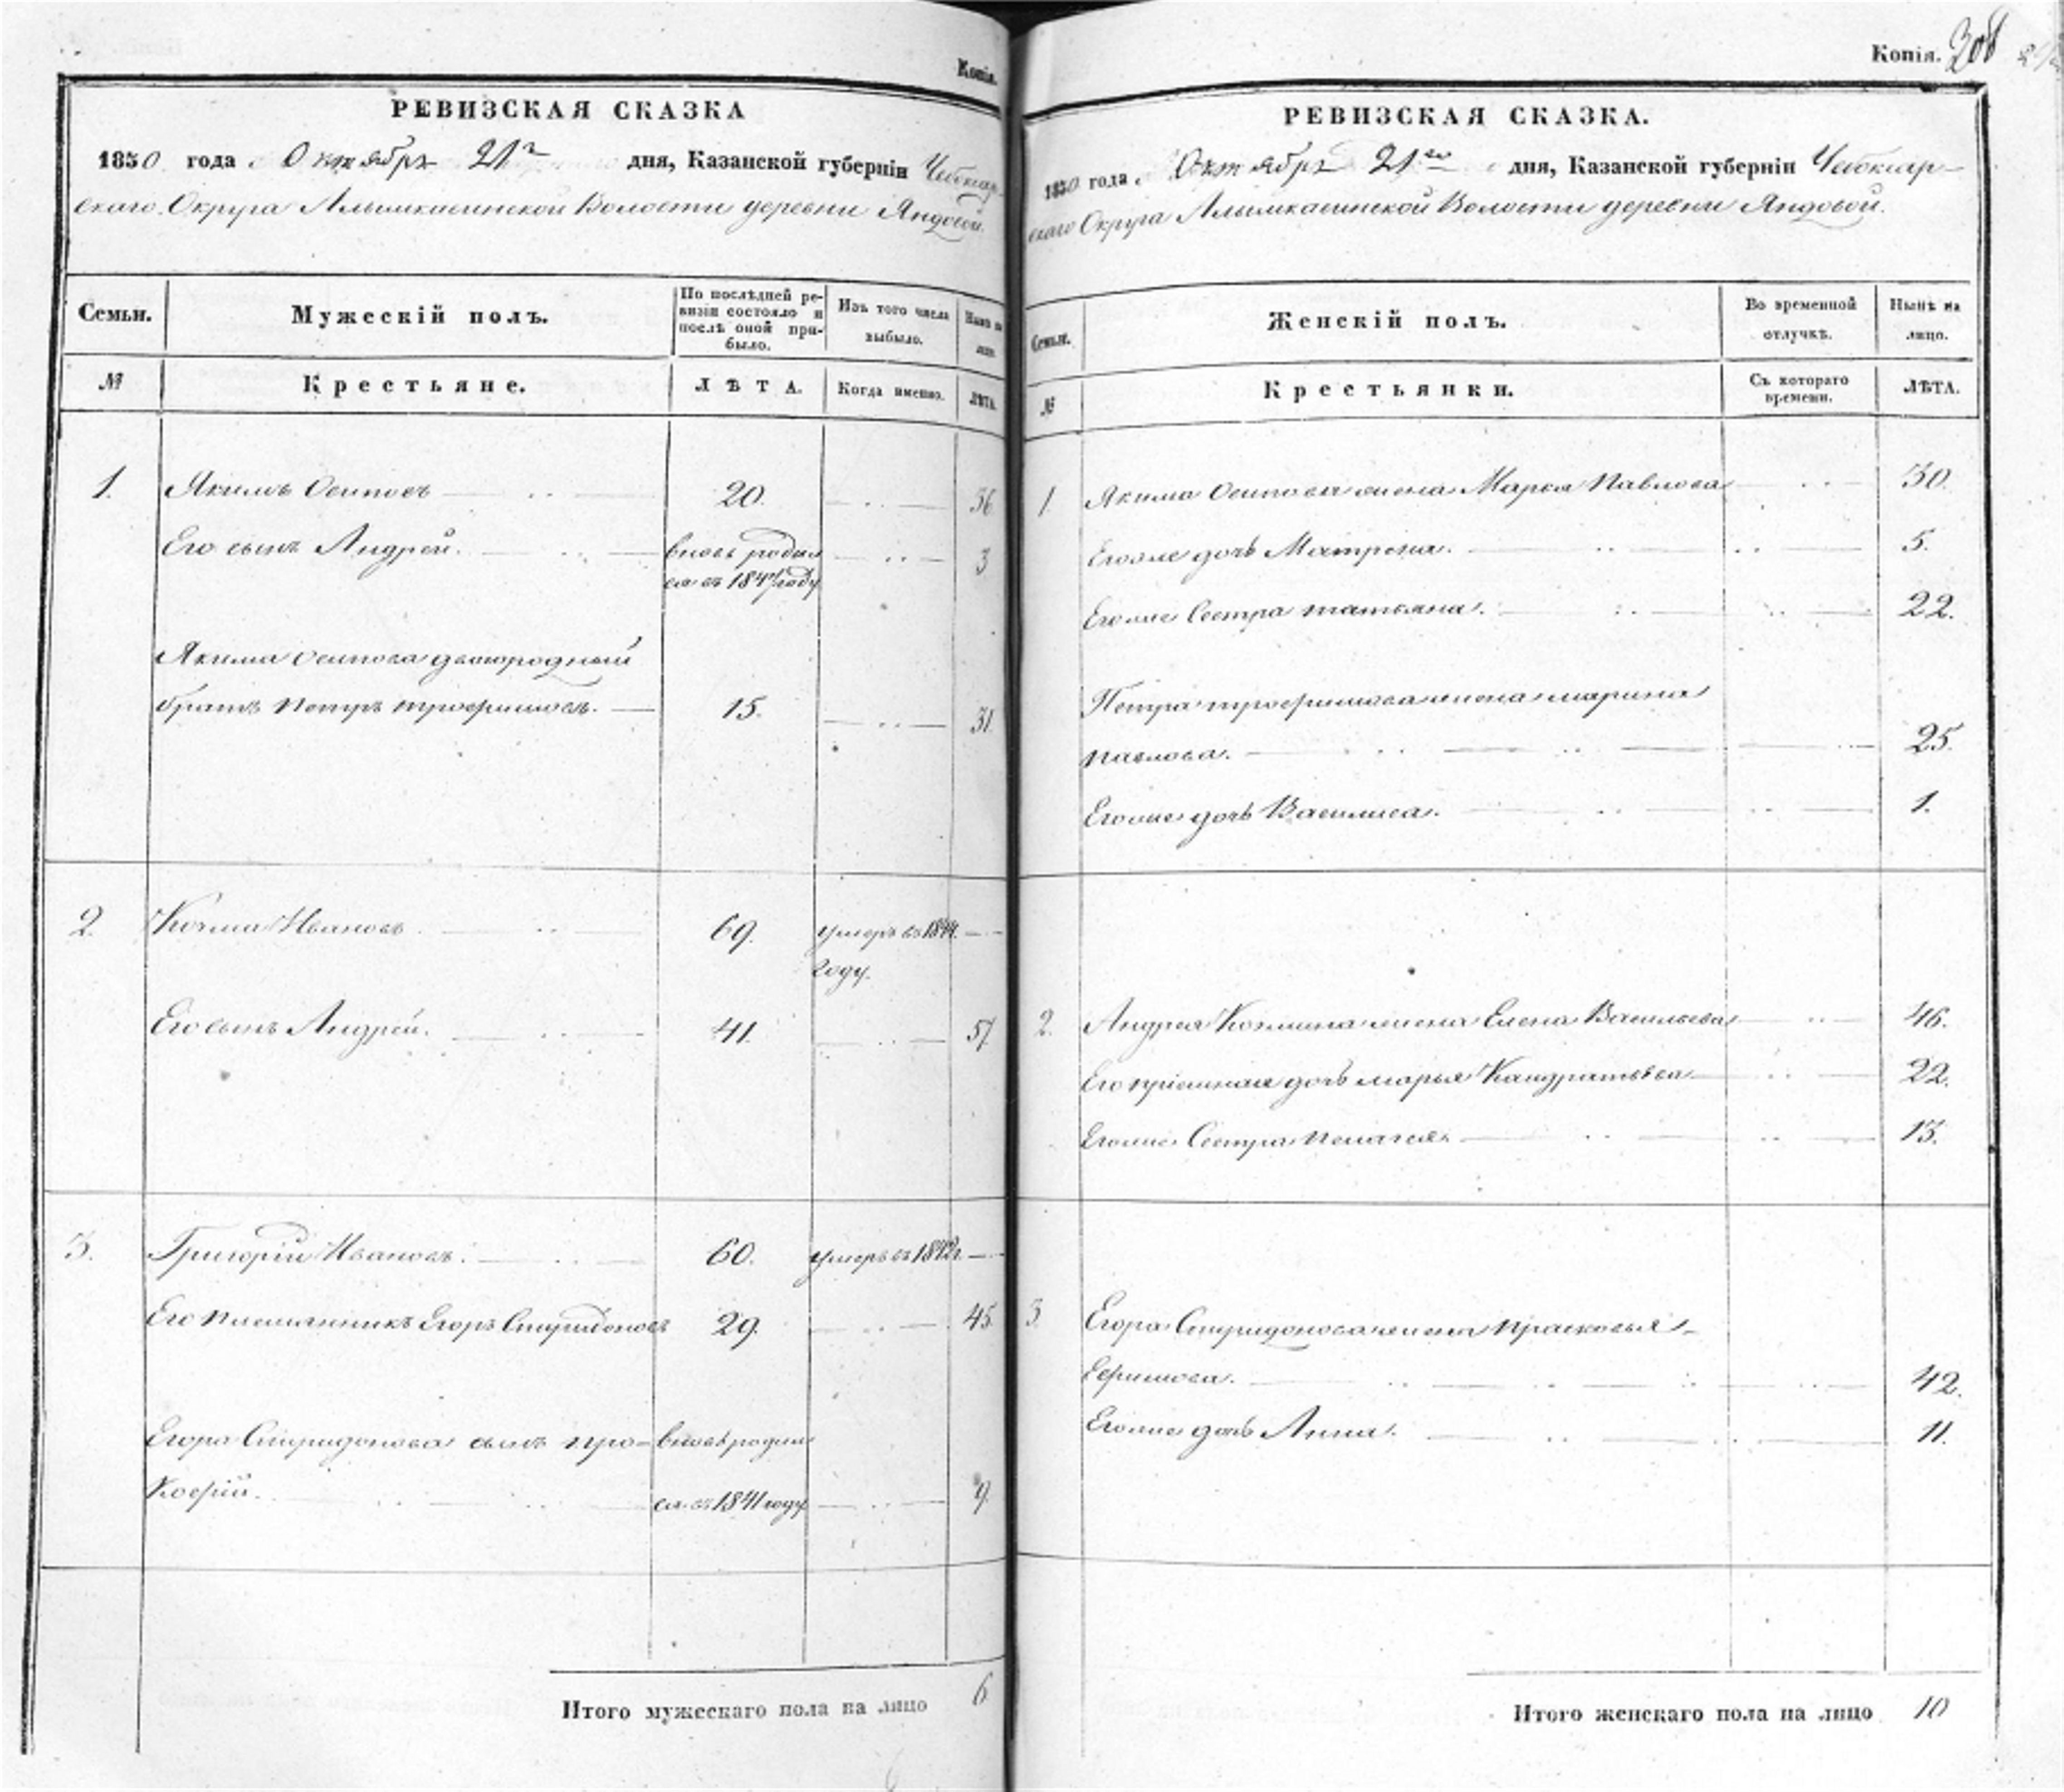 Копія.
РЕВИЗСКАЯ СКАЗКА
1850 года Октября 21го дня, Казанской губерніи Чебоксар-
скаго Округа Алымкасинской Волости деревни Яндовой.
Семьи.
Мужескій полъ.
По послѣдней ре-
визіи состояло и
послѣ оной при-
было.
Изъ того числа
выбыло.
Нынѣ на
лицо.
№
Крестьяне.
ЛѢТА.
Когда именно.
ЛѢТА.
1. Якимъ Осиповъ 20. 36
Его сынъ Андрей. вновь родил 3
ся въ 1847 году
Якима Осипова двоюродный
братъ Петръ Трофимовъ. 15. 31.
2. Козма Ивановъ 69. умеръ въ 1844.
году.
Его сынъ Андрей. 41. 57
3. Григорій Ивановъ. 60. умеръ въ 1842г.
Его племянникъ Егоръ Спиридоновъ 29. 45.
Егора Спиридонова сынъ Про- вновь родил
кофій. ся въ 1841 году 9.
Итого мужескаго пола на лицо 6
Копія. 3об
РЕВИЗСКАЯ СКАЗКА.
1850 года Октября 21го дня, Казанской губерніи Чебоксар-
скаго Округа Алымкасинской Волости деревни Яндовой.
Семьи.
Женскій полъ.
Во временной
отлучкѣ.
Нынѣ на
лицо.
№
Крестьянки.
Съ котораго
времени.
ЛѢТА.
1. Якима Осипова жена Марья Павлова 30.
Егоже дочь Матрена. 5.
Егоже Сестра Татьяна. 22.
Петра Трофимова жена Марина
Павлова. 25.
Егоже дочь Василиса. 1.
2. Андрея Козмина жена Елена Васильева 46.
Его пріемная дочь Марья Кандратьева 22.
Егоже Сестра Пелагея. 13.
3. Егора Спиридонова жена Прасковья
Ефимова. 42.
Егоже дочь Анна. 11.
Итого женскаго пола на лицо 10